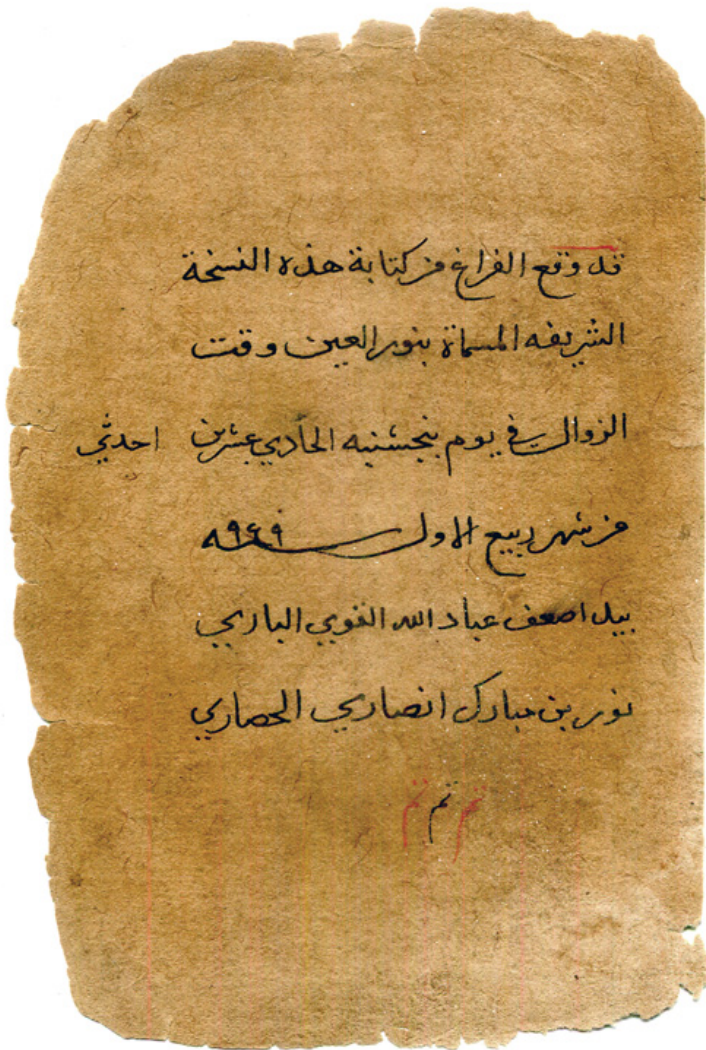 قد وقع الفراغ من كتابة هذه النسخة
الشريفه المسماة بنور العين وقت
الزوال في يوم پنجشنبه الحادي عشرين
من شهر ربيع الاول ٩٤٩ه
بيد اضعف عباد الله القوي الباري
نور بن مبارك انصاري الحصاري
تم تم تم